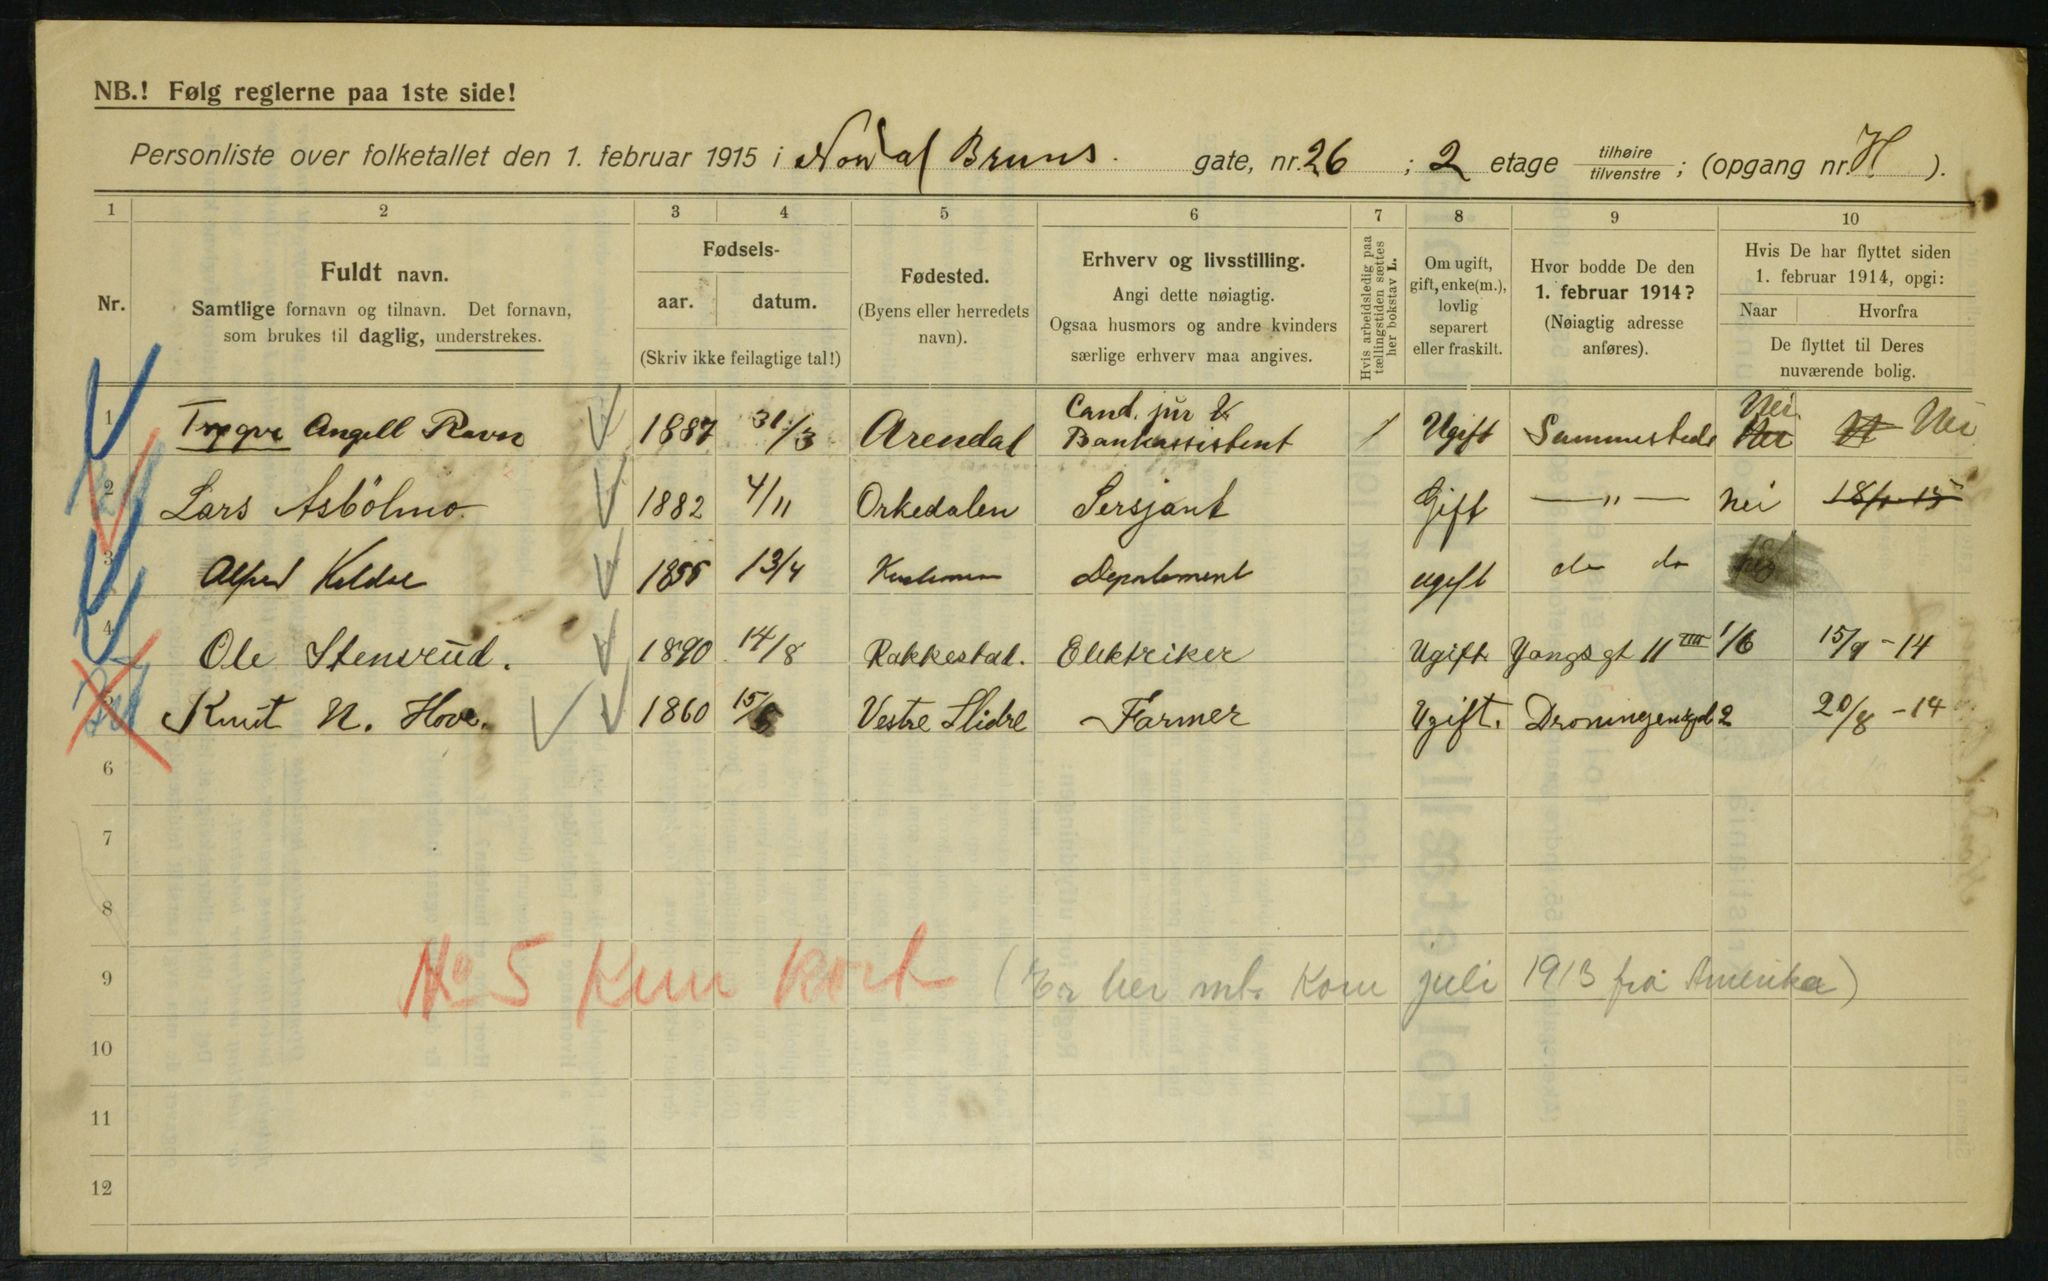 NB.! Følg reglerne paa 1ste side!
Personliste over folketallet den 1. februar 1915 i Nordal Bruns. gate, nr. 26 ; 2 etage tilhøire tilvenstre ; (opgang nr. H ).
1 2 3 4 5 6 7 8 9 10
Nr.
Fuldt navn.
Samtlige fornavn og tilnavn. Det fornavn,
som brukes til daglig, understrekes.
Fødsels-
aar. datum.
(Skriv ikke feilagtige tal!)
Fødested.
(Byens eller herredets
navn).
Erhverv og livsstilling.
Angi dette nøiagtig.
Ogsaa husmors og andre kvinders
særlige erhverv maa angives.
Hvis arbeidsledig paa
tællingstiden sættes
her bokstav L.
Om ugift,
gift, enke(m.),
lovlig
separert
eller fraskilt.
Hvor bodde De den
1. februar 1914?
(Nøiagtig adresse
anføres).
Hvis De har flyttet siden
1. februar 1914, opgi:
Naar Hvorfra
De flyttet til Deres
nuværende bolig.
1 Trygve Angell Ravn 1887 31/3 Arendal Cand. jur
Bankassistent Ugift Sammesteds Nei Nei
2 Lars Asbölmo 1882 4/11 Orkedalen Sersjant Gift — " — Nei 18/1-15
3 Alfred Keldse 13/4 Departement ugift do do
4 Ole Stensrud. 1890 14/8 Rakkestad. Elektriker Ugift 11 1/6 15/9 - 14
5 Knut N. Hove. 1860 15/ Vestre Slidre Farmer Ugift. 2 20/8 - 14
6
7
8
9 No 5 Kun kort (Er her mt. Kom juli 1913 fra Amerika)
10
11
12